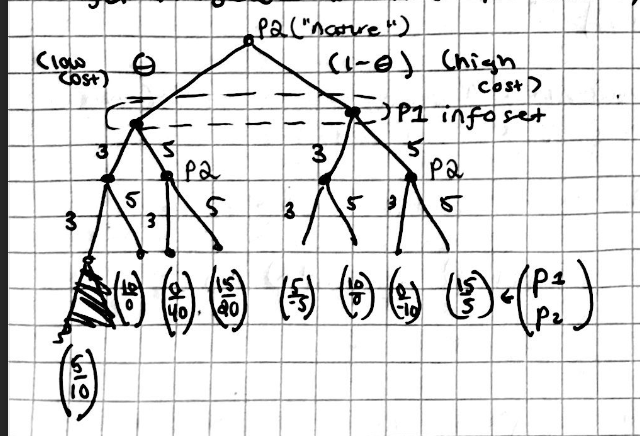 P2 ("nature")
(low cost) θ (1-θ) (high cost)
P1 infoset
3 5 3 5
P2 P2
3 5 3 5 3 5 3 5
(10/0) (0/40) (15/20) (5/-5) (10/0) (0/-10) (15/5) ← (P1 P2)
(5/10)